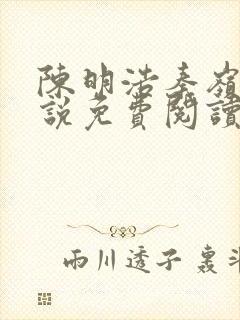 陳明浩秦嶺
說免費閱讀
雨川透子 裏